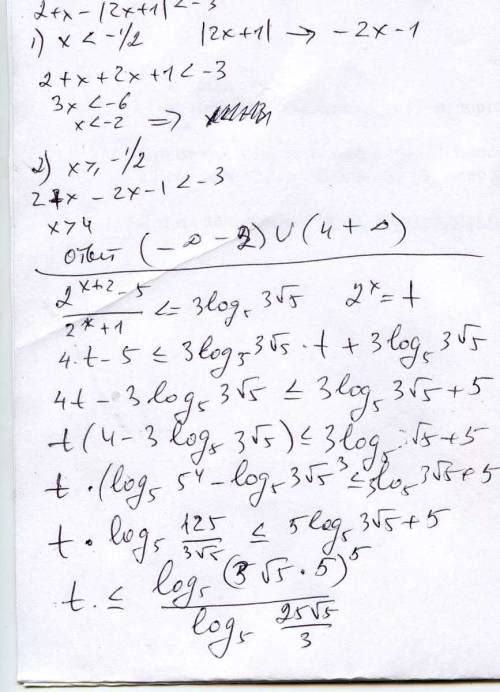 2+x-|2x+1|<-3
1) x<-1/2 |2x+1| → -2x-1
2+x+2x+1<-3
3x<-6
x<-2 ⇒
2) x⩾-1/2
2+x-2x-1<-3
x>4
ответ (-∞ -2)∪(4+∞)
(2^(x+2)-5)/(2^x+1) <= 3log₅3√5 2^x=t
4·t-5 ≤ 3log₅3√5·t+3log₅3√5
4t-3log₅3√5 ≤ 3log₅3√5+5
t(4-3log₅3√5) ≤ 3log₅√5+5
t·(log₅5⁴-log₅3√5³ ≤ 3log₅3√5+5
t·log₅ 125/(3√5) ≤ 5log₅3√5+5
t.≤ log₅(3√5·5)⁵ / log₅ (25√5/3)